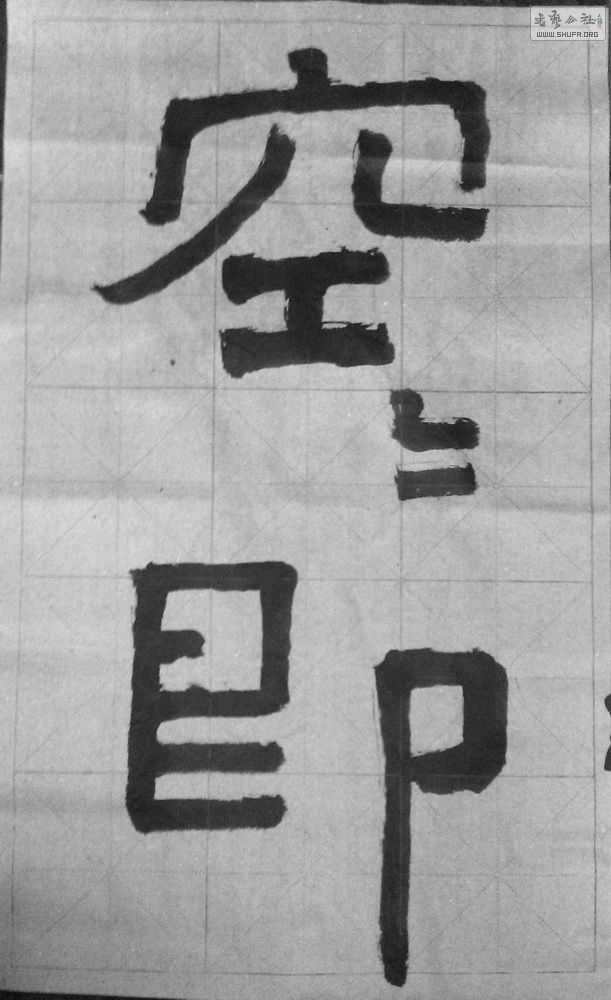 空〻即
书艺公社
WWW.SHUFA.ORG